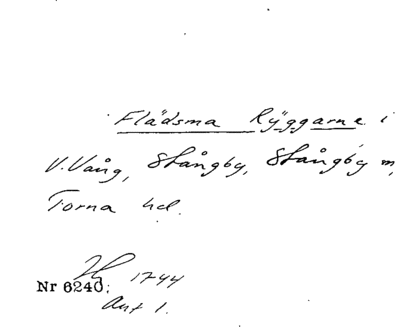 Flädsma Ryggarne i
V.Vång, Stångby, Stångby m,
Torna hd.
1744
Nr 6240;
Akt 1.